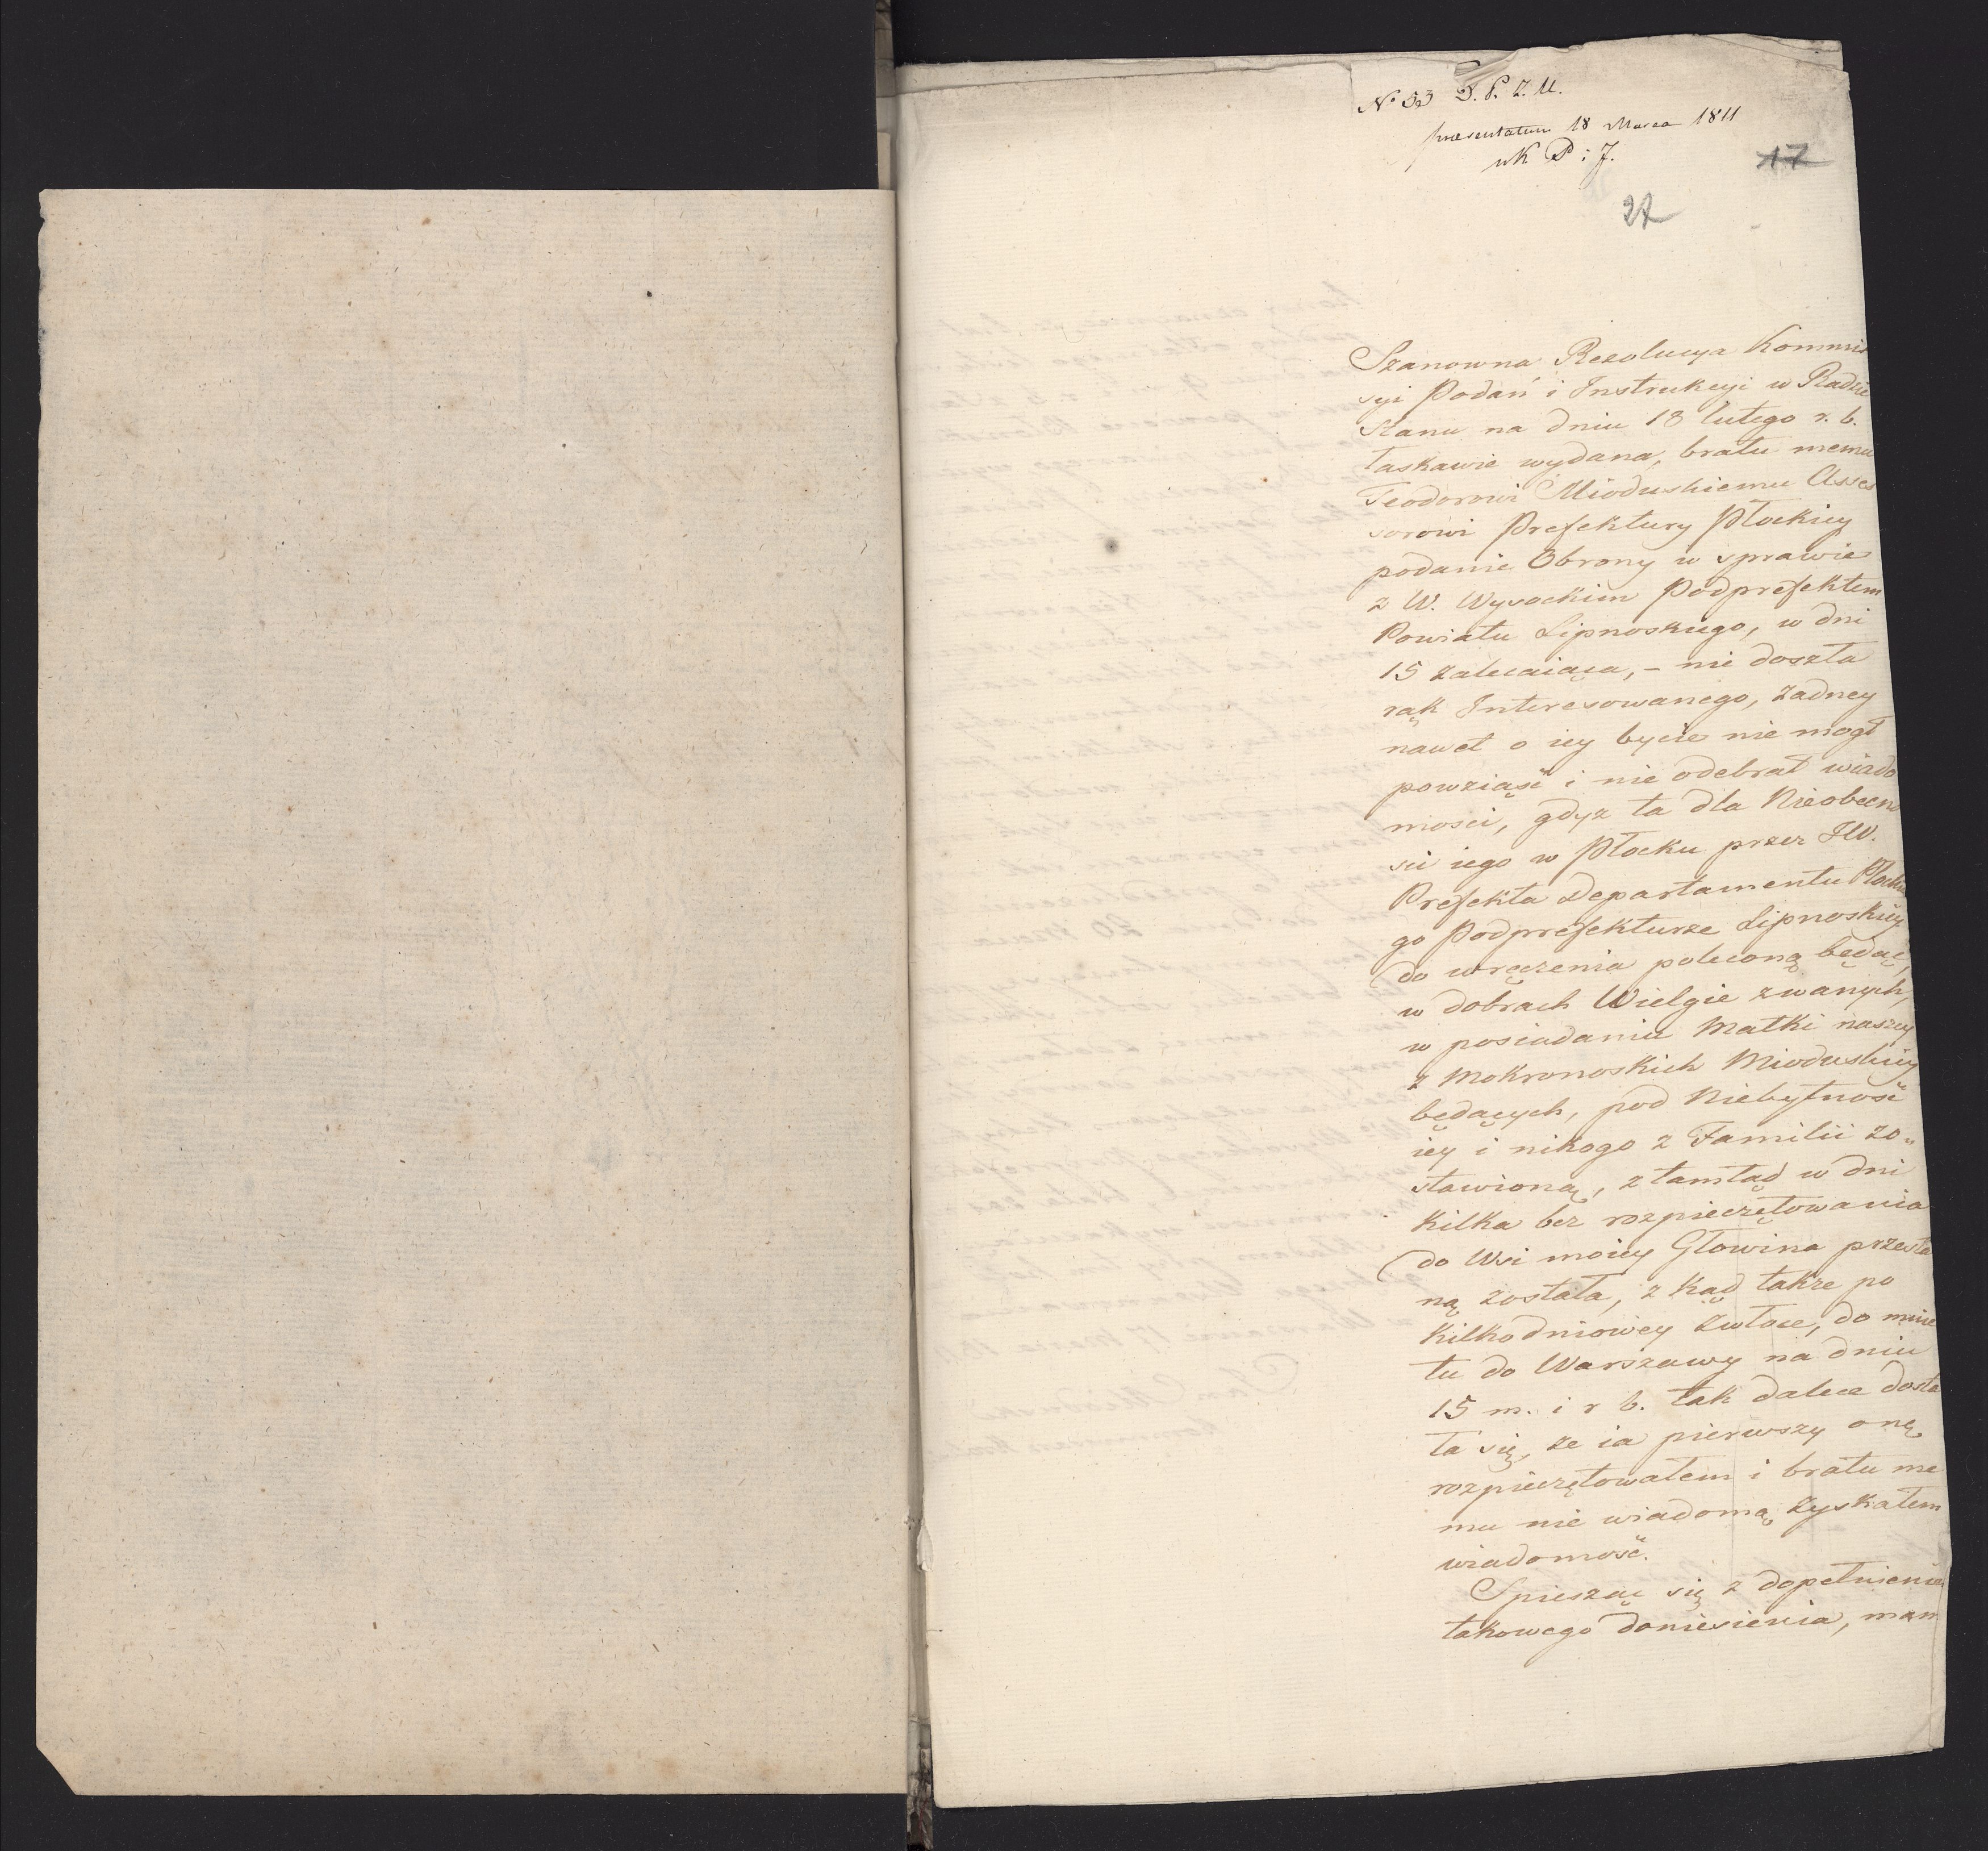 N. 53 D. P. Z. U.
praesentatum 18 Marca 1811
w K P i J.
17
27
Szanowna Rezolucya Kommis
syi Podań i Instrukcyi w Radzie
Stanu na dniu 18 lutego r. b.
łaskawie wydana, bratu memu
Teodorowi Mioduskiemu Asses
sorowi Prefektury Płockiey
podanie Obrony w sprawie
z W. Wysockim Podprefektem
Powiatu Lipnoskiego, w dni
15 zalecaiąca, – nie doszła
rąk Interesowanego, żadney
nawet o iey bycie nie mogł
powziąść i nie odebrał wiado
mosci, gdyz ta dla Nieobecno
sci iego w Płocku przez JW.
Prefekta Departamentu Płockie
go Podprefekturze Lipnoskiey
do wręczenia poleconą będąc,
w dobrach Wielgie zwanych,
w posiadaniu Matki naszey
z Mokronoskich Mioduskiey
będących, pod Niebytność
iey i nikogo z Familii zo„
stawioną, z tamtąd w dni
kilka bez rozpieczętowania
do Wsi moiey Głowina przesła
ną została, z kąd także po
kilkodniowey zwłoce, do mnie
tu do Warszawy na dniu
15 m. i r b. tak dalece dosta
ła się, ze ia pierwszy onę
rozpieczętowałem i bratu me
mu nie wiadomą zyskałem
wiadomość.
Spiesząc się z dopełnienie
takowego doniesienia, mam